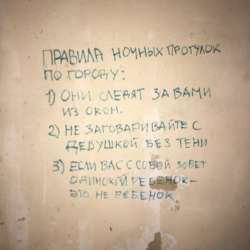 ПРАВИЛА НОЧНЫХ ПРОГУЛОК
ПО ГОРОДУ:
1) ОНИ СЛЕДЯТ ЗА ВАМИ
ИЗ ОКОН.
2) НЕ ЗАГОВАРИВАЙТЕ С
ДЕДУШКОЙ БЕЗ ТЕНИ
3) ЕСЛИ ВАС С СОБОЙ ЗОВЕТ
ОДИНОКИЙ РЕБЕНОК-
ЭТО НЕ РЕБЕНОК